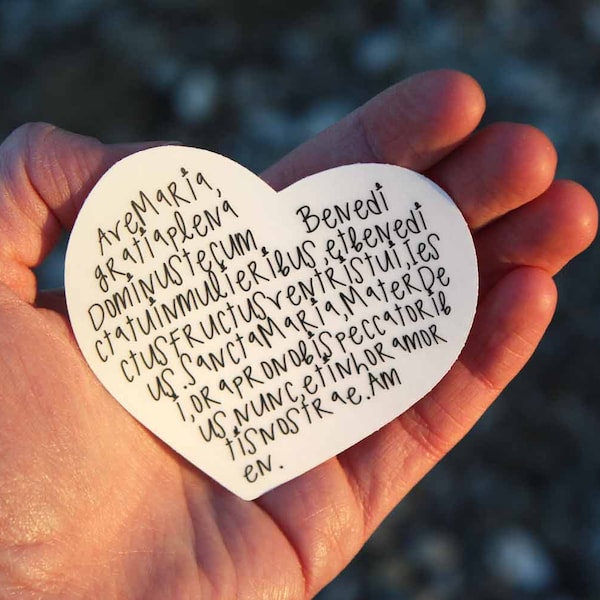 AveMaria,
gratiaplena
Dominustecum. Benedi
ctatuinmulieribus,etbenedi
ctusfructusventristui,Ies
us.SanctaMaria,MaterDe
i,orapronobispeccatorib
us,nunc,etinhoramor
tisnostrae.Am
en.